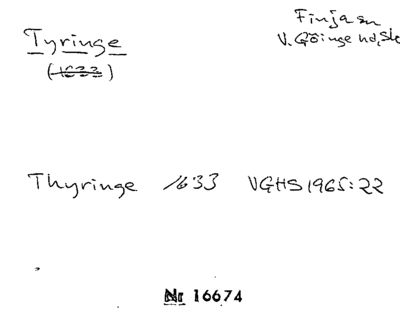 Tyringe
(1633)
Finja sn
V. Göinge hd, Sk
Thyringe 1633 VGHS 1965:22
Nr 16674